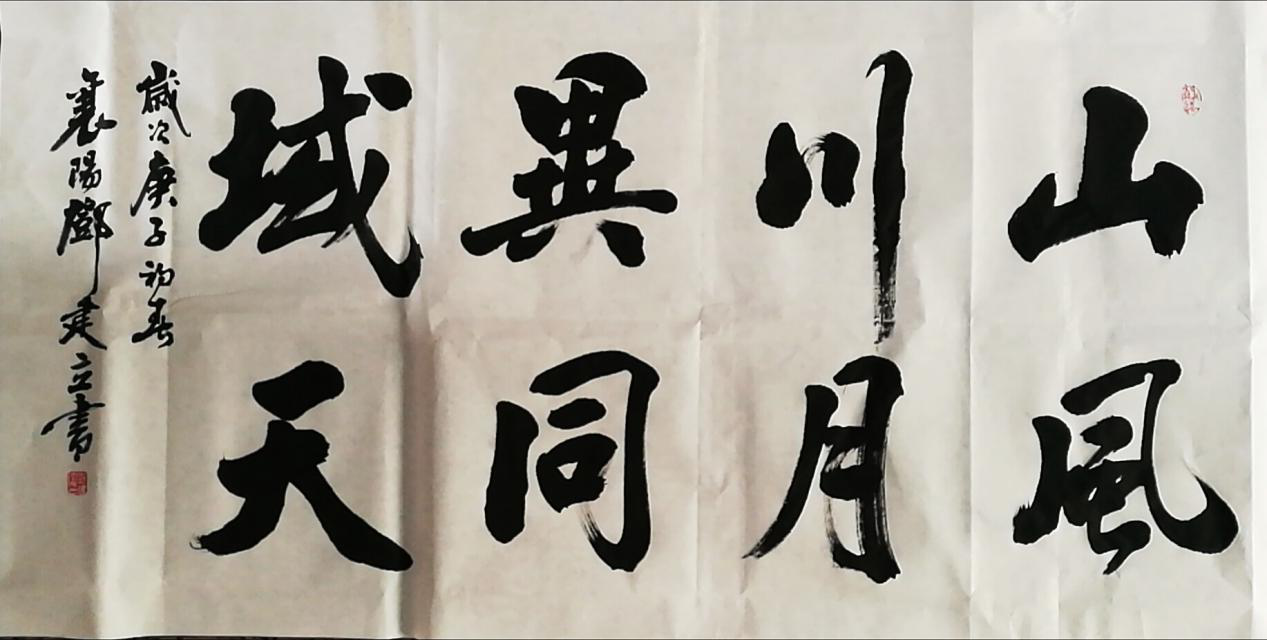 山川異域
風月同天
歲次庚子初春
襄陽鄧建立書